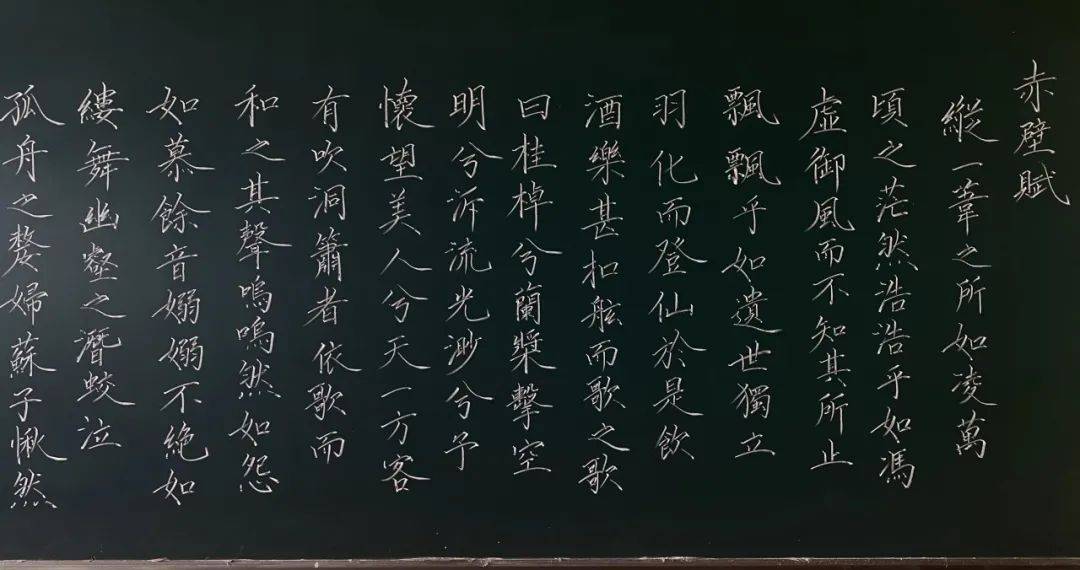 赤壁賦
縱一葦之所如凌萬
頃之茫然浩浩乎如馮
虛御風而不知其所止
飄飄乎如遺世獨立
羽化而登仙於是飲
酒樂甚扣舷而歌之歌
曰桂棹兮蘭槳擊空
明兮泝流光渺兮予
懷望美人兮天一方客
有吹洞簫者依歌而
和之其聲嗚嗚然如怨
如慕餘音嫋嫋不絕如
縷舞幽壑之潛蛟泣
孤舟之嫠婦蘇子愀然